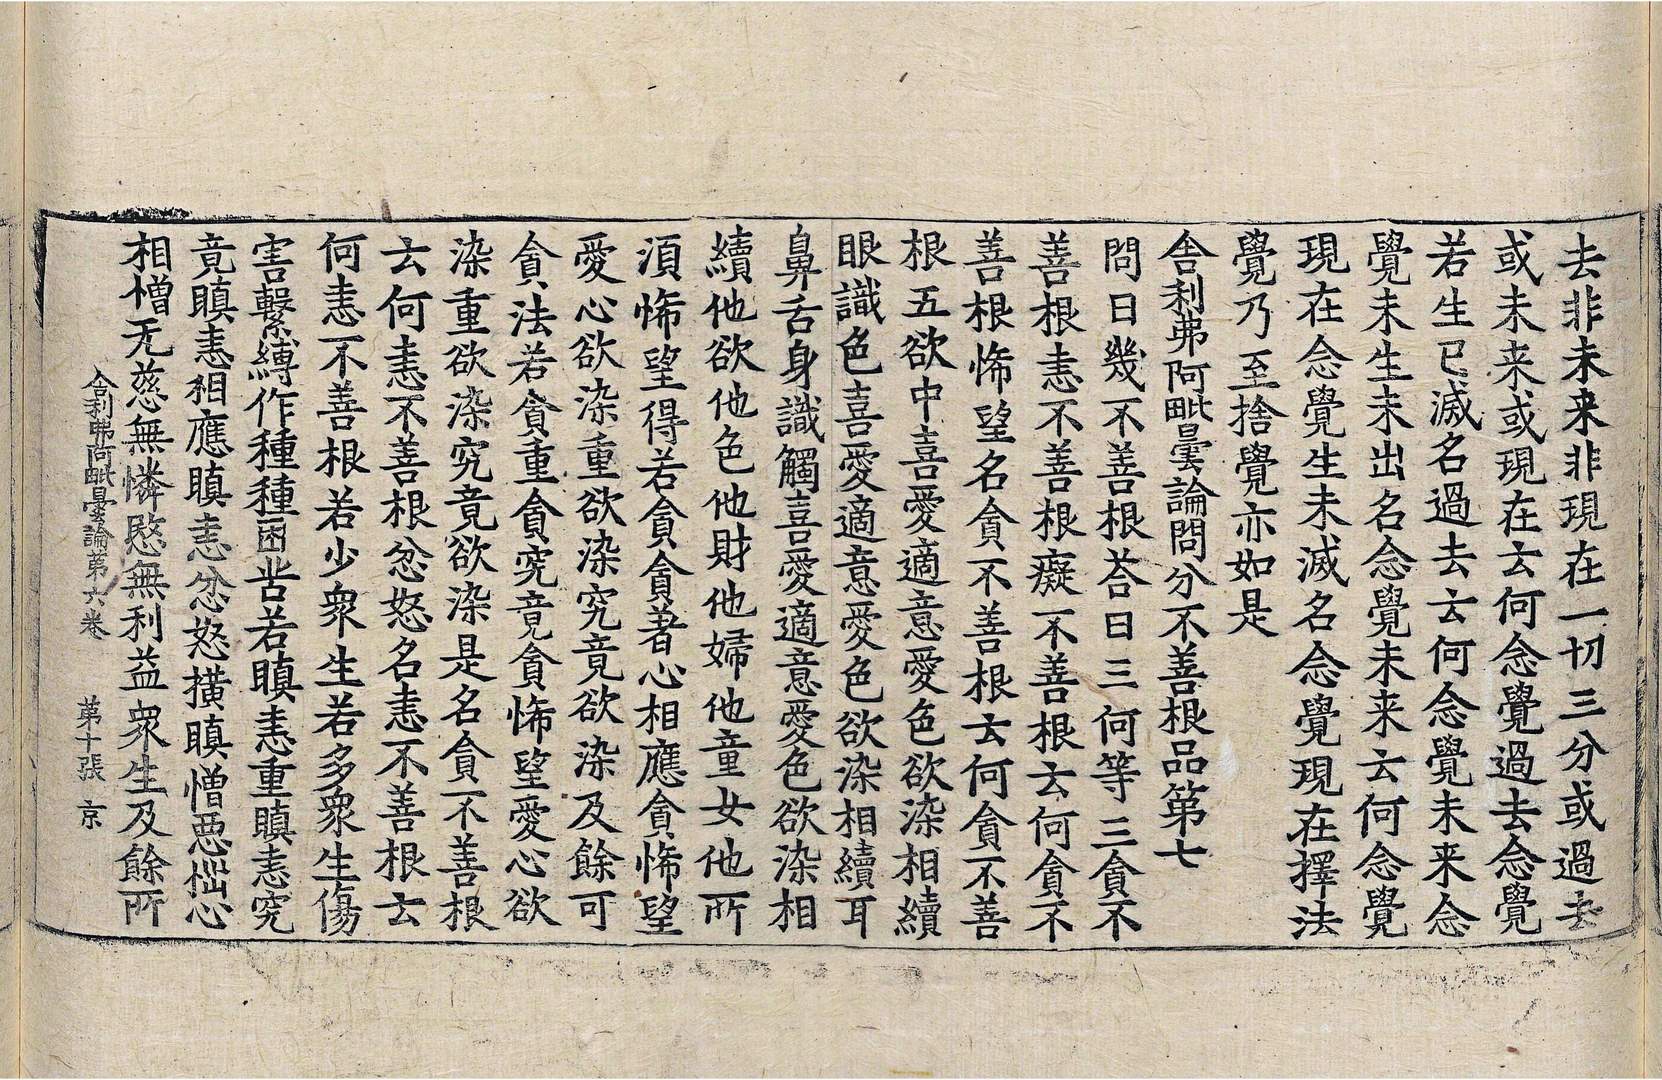 去非未来非現在一切三分或過去
或未来或現在云何念覺過去念覺
若生已滅名過去云何念覺未来念
覺未生未出名念覺未来云何念覺
現在念覺生未滅名念覺現在擇法
覺乃至捨覺亦如是
舍利弗阿毗曇論問分不善根品第七
問曰幾不善根荅曰三何等三貪不
善根恚不善根癡不善根云何貪不
善根悕望名貪不善根云何貪不善
根五欲中喜愛適意愛色欲染相續
眼識色喜愛適意愛色欲染相續耳
鼻舌身識觸喜愛適意愛色欲染相
續他欲他色他財他婦他童女他所
須悕望得若貪貪著心相應貪悕望
愛心欲染重欲染究竟欲染及餘可
貪法若貪重貪究竟貪悕望愛心欲
染重欲染究竟欲染是名貪不善根
云何恚不善根忿怒名恚不善根云
何恚不善根若少衆生若多衆生傷
害繫縛作種種困苦若瞋恚重瞋恚究
竟瞋恚相應瞋恚忿怒㩴瞋憎惡㤕心
相憎无慈無憐愍無利益衆生及餘所
舍利弗阿毗曇論第六卷 第十張 京